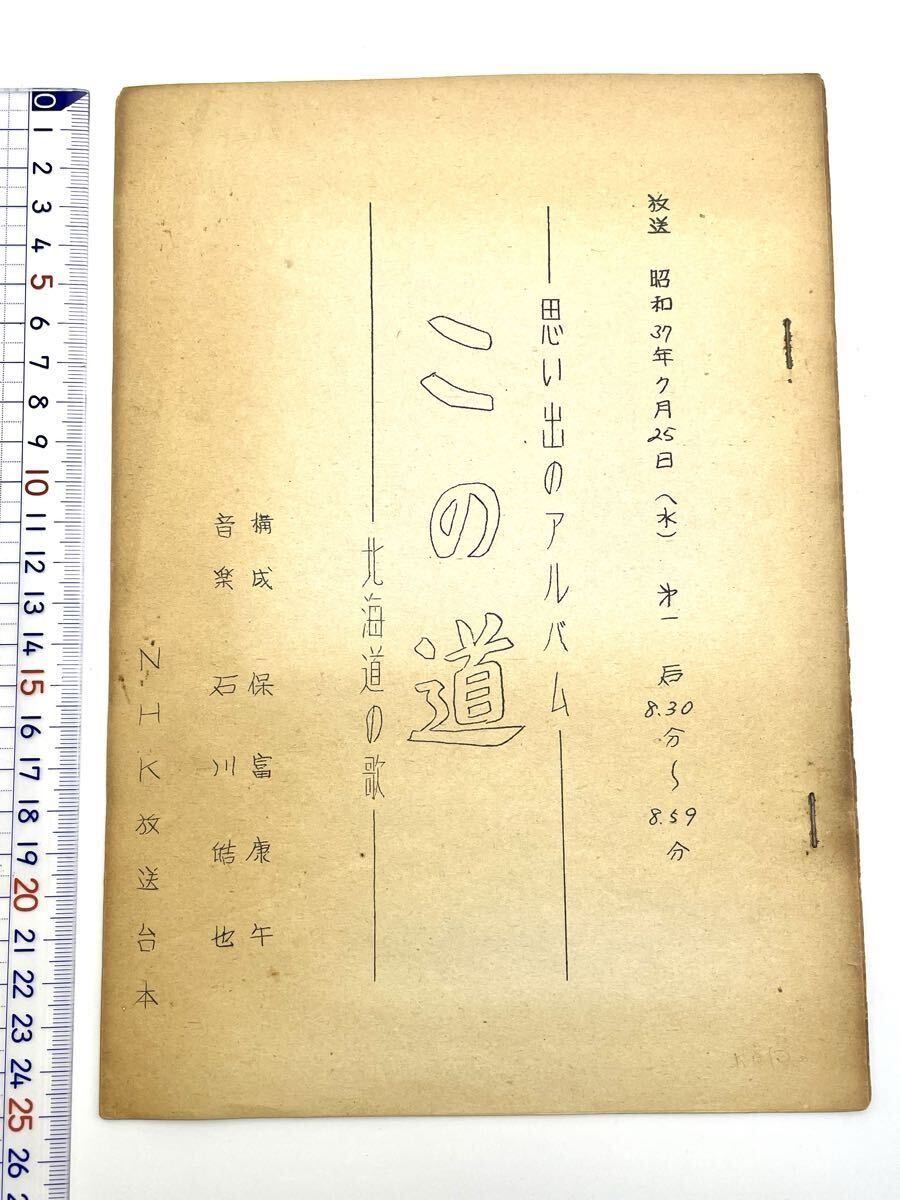 放送 昭和37年7月25日(水) 才一 后8.30分〜8.59分
思い出のアルバム
この道
北海道の歌
構成 保富康午
音楽 石川皓也
NHK放送台本
0 1 2 3 4 5 6 7 8 9 10 11 12 13 14 15 16 17 18 19 20 21 22 23 24 25 26